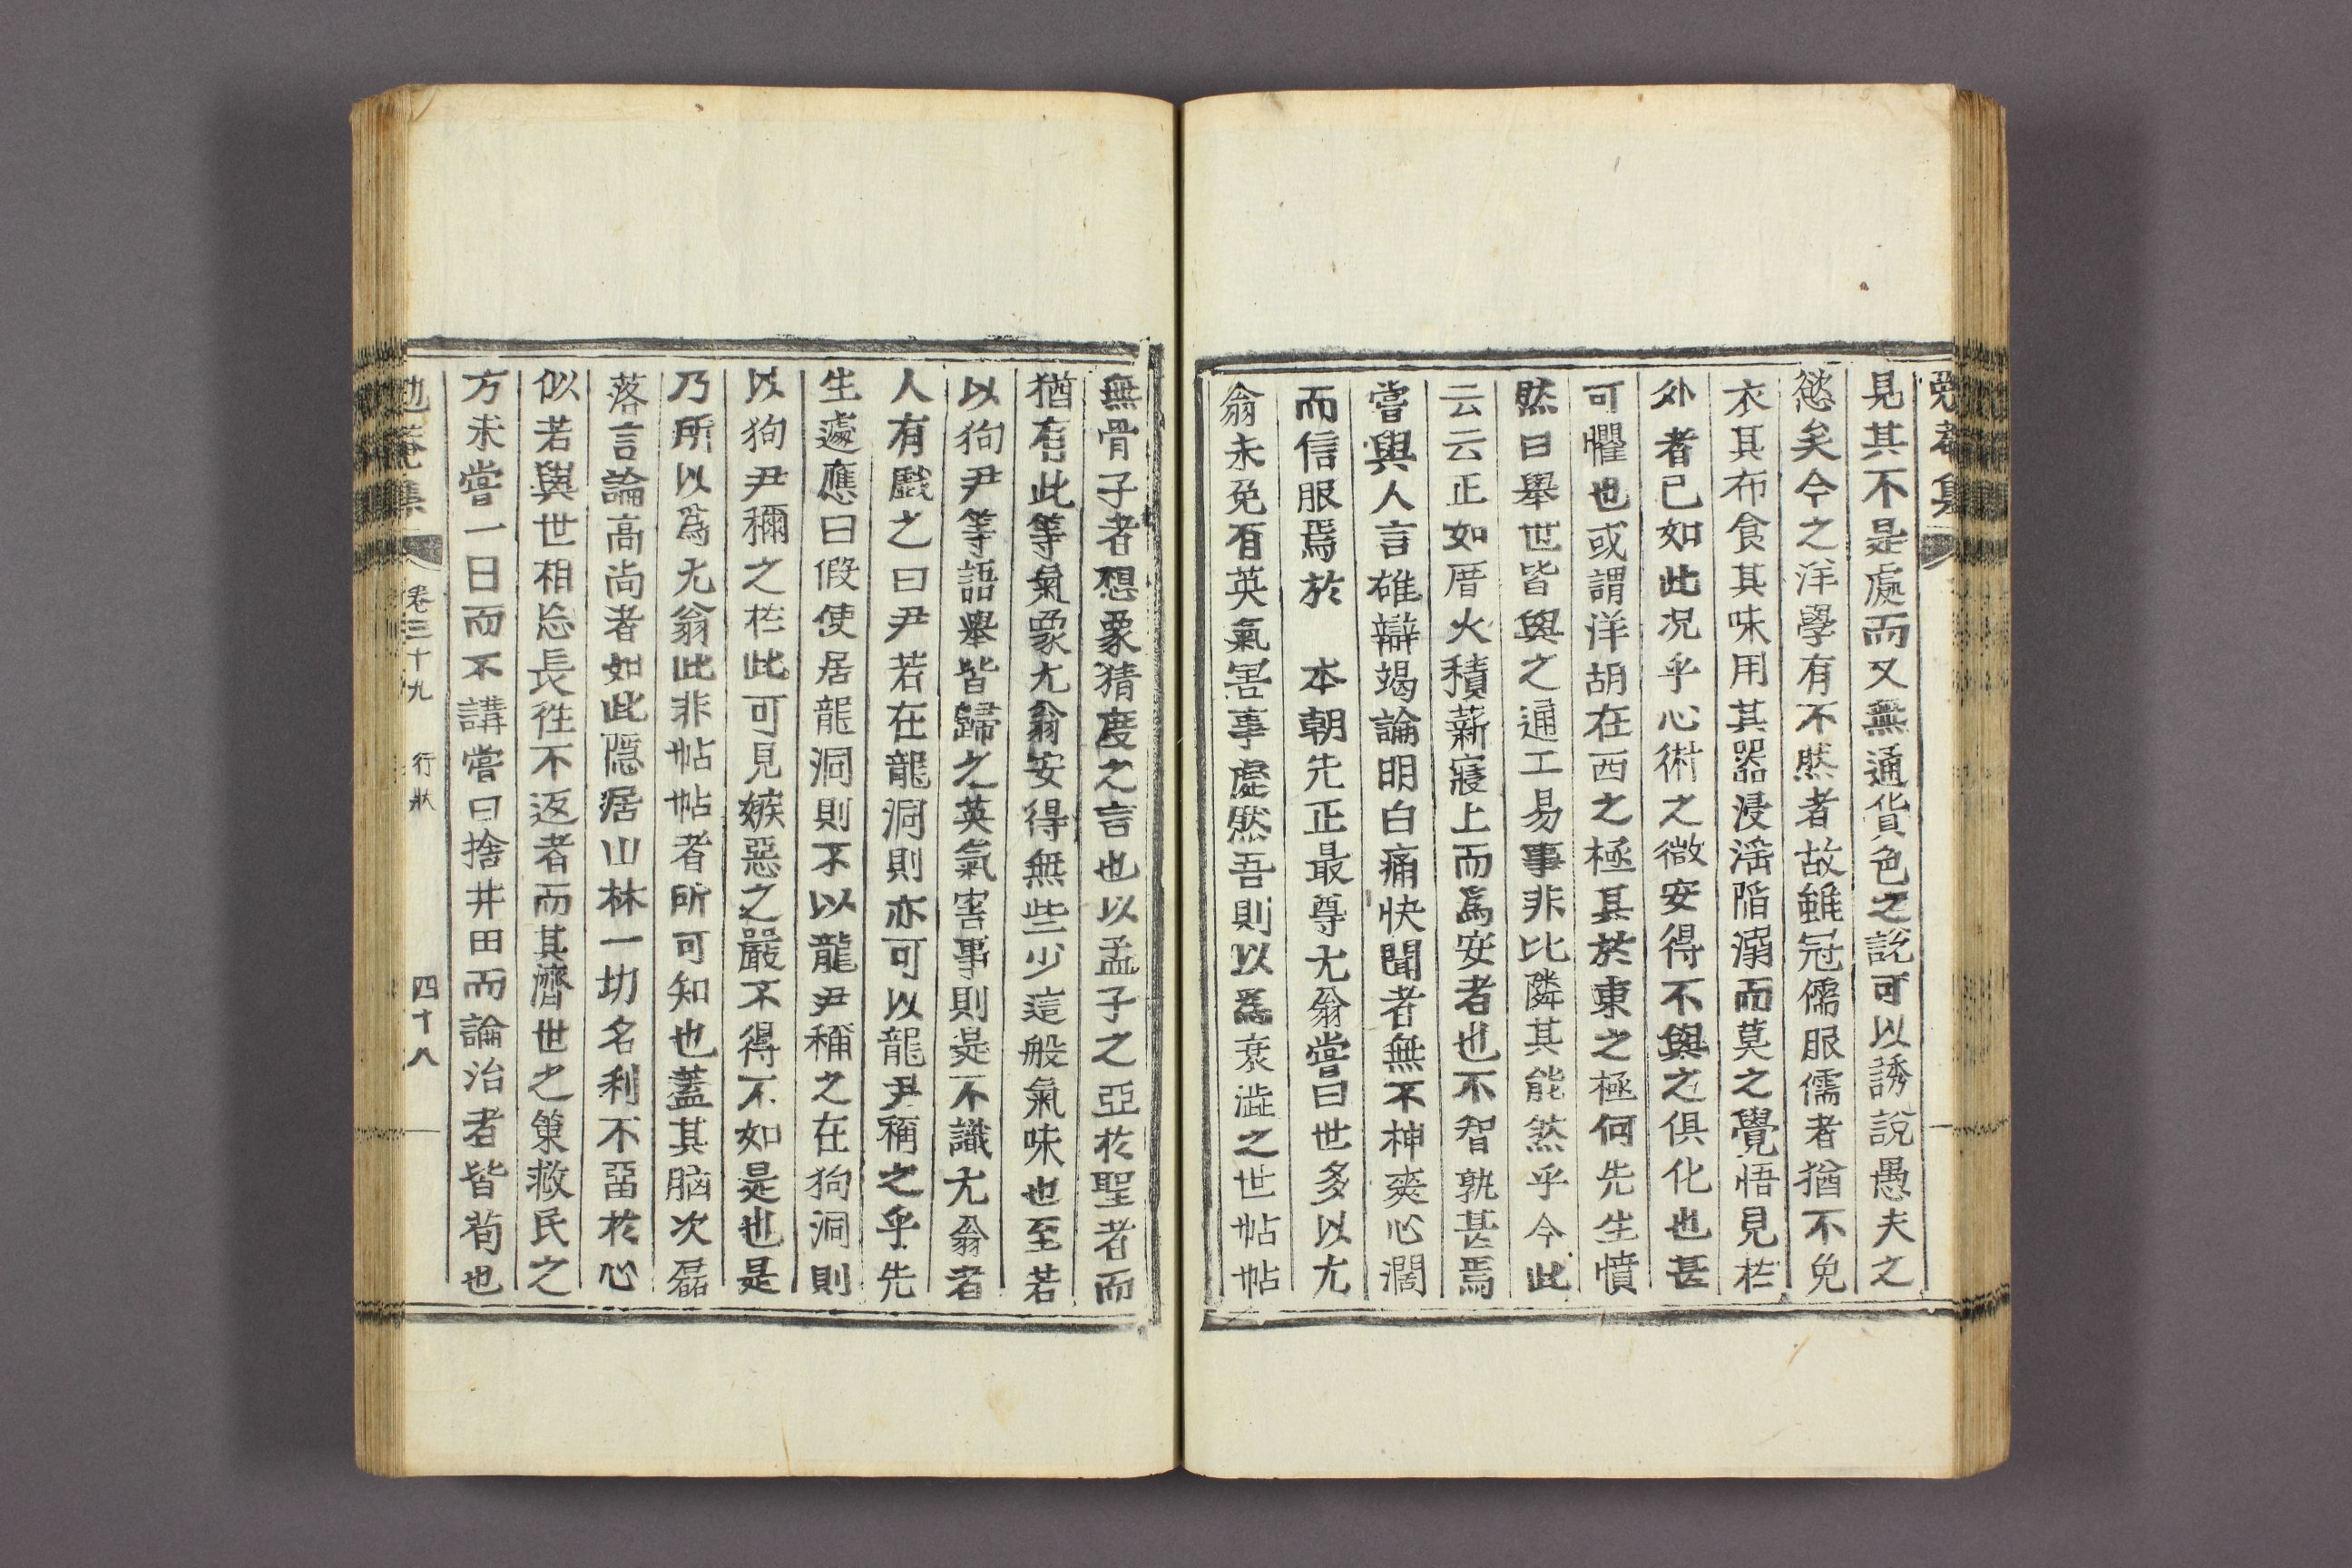 勉菴集
見其不是處而又無通貨色之說可以誘說愚夫之
慾矣今之洋學有不然者故雖冠儒服儒者猶不免
衣其布食其味用其器浸淫陷溺而莫之覺悟見於
外者已如此况乎心術之微安得不與之俱化也甚
可懼也或謂洋胡在西之極其於東之極何先生憤
然曰舉世皆與之通工易事非比隣其能然乎今此
云云正如厝火積薪寢上而爲安者也不智孰甚焉
嘗與人言雄辯竭論明白痛快聞者無不神爽心濶
而信服焉於　本朝先正最尊尤翁嘗曰世多以尤
翁未免有英氣害事處然吾則以爲衰澁之世帖帖
無骨子者想象猜度之言也以孟子之亞於聖者而
猶有此等氣象尤翁安得無些少這般氣味也至若
以狗尹等語擧皆歸之英氣害事則是不識尤翁者
人有戲之曰尹若在龍洞則亦可以龍尹稱之乎先
生遽應曰假使居龍洞則不以龍尹稱之在狗洞則
以狗尹稱之於此可見嫉惡之嚴不得不如是也是
乃所以爲尤翁此非帖帖者所可知也蓋其脑次磊
落言論高尚者如此隱居山林一切名利不留於心
似若與世相忘長徃不返者而其濟世之策救民之
方未嘗一日而不講嘗曰捨井田而論治者皆苟也
勉菴集　卷三十九　行狀　四十八